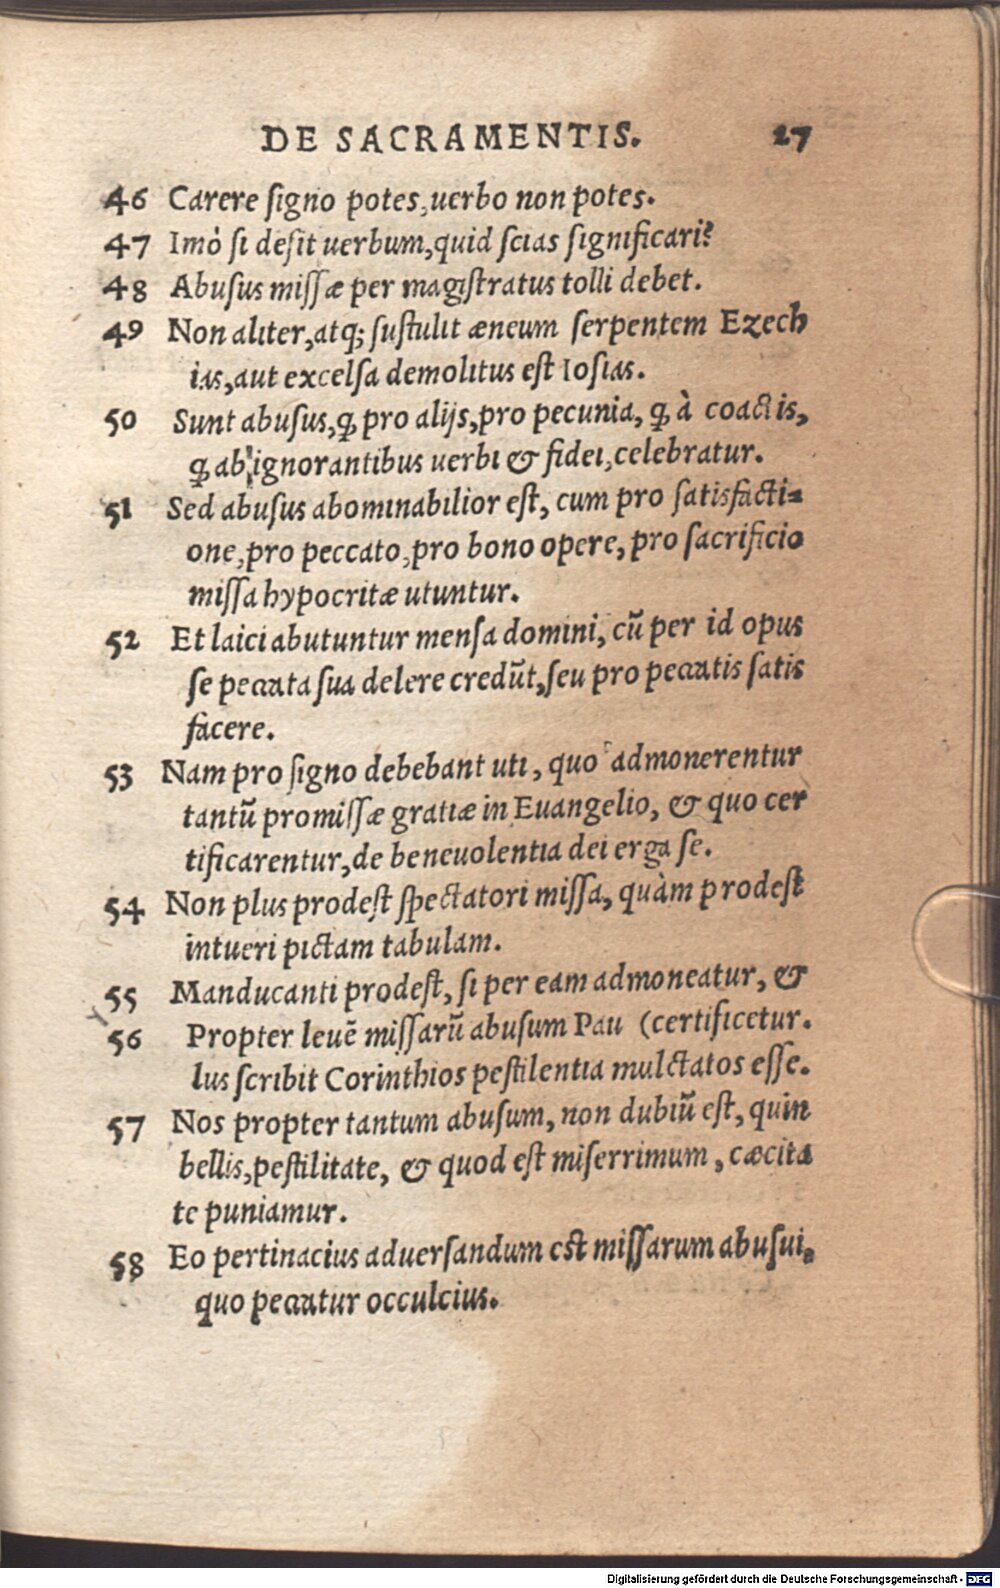 DE SACRAMENTIS. 27
46 Carere ſigno potes, uerbo non potes.
47 Imò ſi deſit uerbum, quid ſcias ſignificari?
48 Abuſus miſſæ per magiſtratus tolli debet.
49 Non aliter, atq; ſuſtulit æneum ſerpentem Ezech
ias, aut excelſa demolitus eſt Ioſias.
50 Sunt abuſus, ꝙ pro alijs, pro pecunia, ꝙ à coactis,
ꝙ ab ignorantibus uerbi & fidei, celebratur.
51 Sed abuſus abominabilior eſt, cum pro ſatisfacti=
one, pro peccato, pro bono opere, pro ſacrificio
miſſa hypocritæ utuntur.
52 Et laici abutuntur menſa domini, cū per id opus
ſe peccata ſua delere credūt, ſeu pro peccatis ſatis
facere.
53 Nam pro ſigno debebant uti, quo admonerentur
tantū promiſſæ gratiæ in Euangelio, & quo cer
tificarentur, de beneuolentia dei erga ſe.
54 Non plus prodeſt ſpectatori miſſa, quàm prodeſt
intueri pictam tabulam.
55 Manducanti prodeſt, ſi per eam admoneatur, &
56 Propter leuē miſſarū abuſum Pau (certificetur.
lus ſcribit Corinthios peſtilentia mulctatos eſſe.
57 Nos propter tantum abuſum, non dubiū eſt, quin
bellis, peſtilitate, & quod eſt miſerrimum, cæcita
te puniamur.
58 Eo pertinacius aduerſandum eſt miſſarum abuſui,
quo peccatur occulcius.
Digitalisierung gefördert durch die Deutsche Forschungsgemeinschaft - DFG